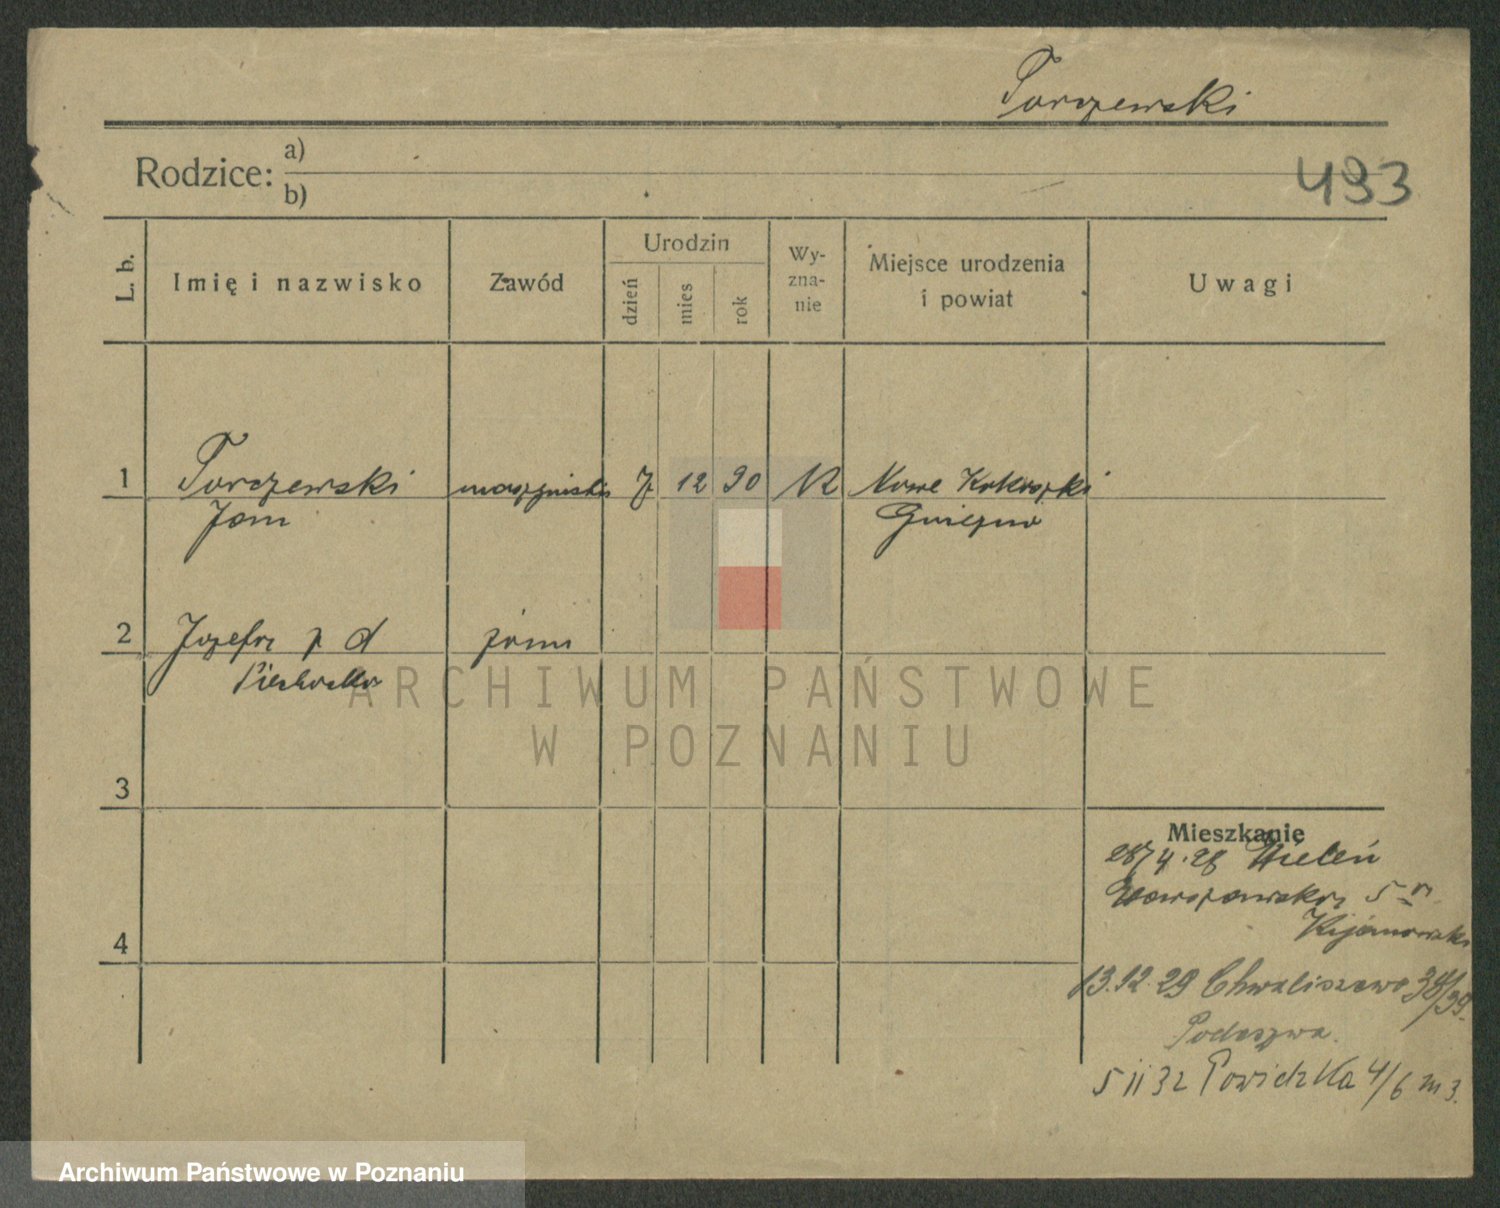 Torzewski
Rodzice: a)
b)
493
L. b.
Imię i nazwisko
Zawód
Urodzin
dzień
mies
rok
Wy-
zna-
nie
Miejsce urodzenia
i powiat
Uwagi
1 Torzewski maszynista 7 12 90 R Nowe
Jan Gniezno
2 Józefa z d żona
Piechocka
ARCHIWUM PAŃSTWOWE
W POZNANIU
3
Mieszkanie
28/4.28 Wieleń
Warszawska 5
4
13.12.29 Chwaliszewo 38/39
Podeszwa.
5 II 32 Powidzka 4/6 m 3.
Archiwum Państwowe w Poznaniu